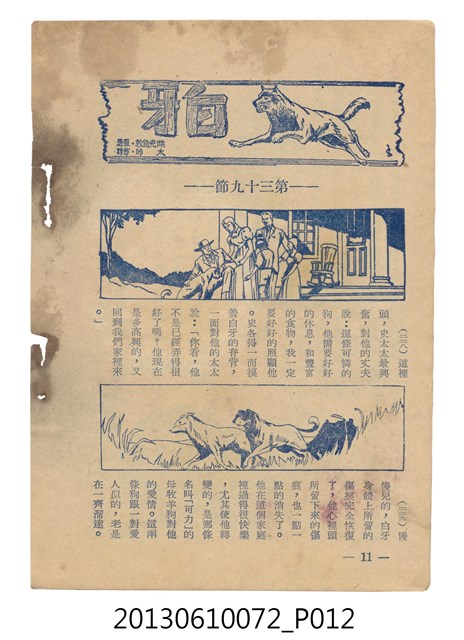 白牙
第三十九節
這裡
頭，史太太最興
奮，對他的丈夫
說：這條可憐的
狗，他需要好好
的休息，和豐富
的食物，我一定
要好好的照顧他
。史各得一面摸
着白牙的脊背，
一面對他的太太
說：「你看，他
不是已經弄得很
好了嗎？他現在
是多高興的，又
回到我們家裡來
。」
慢
慢兒的，白牙
身體上所留的
傷痕完全恢復
了，他心裡頭
所留下來的傷
痕，也一點一
點的消失了。
他在這個家庭
裡過得很快樂
，尤其使他轉
變的，是那條
名叫「可力」的
母牧羊狗對他
的愛情。這兩
條狗跟一對愛
人似的，老是
在一齊溜達。
— 11 —
20130610072_P012